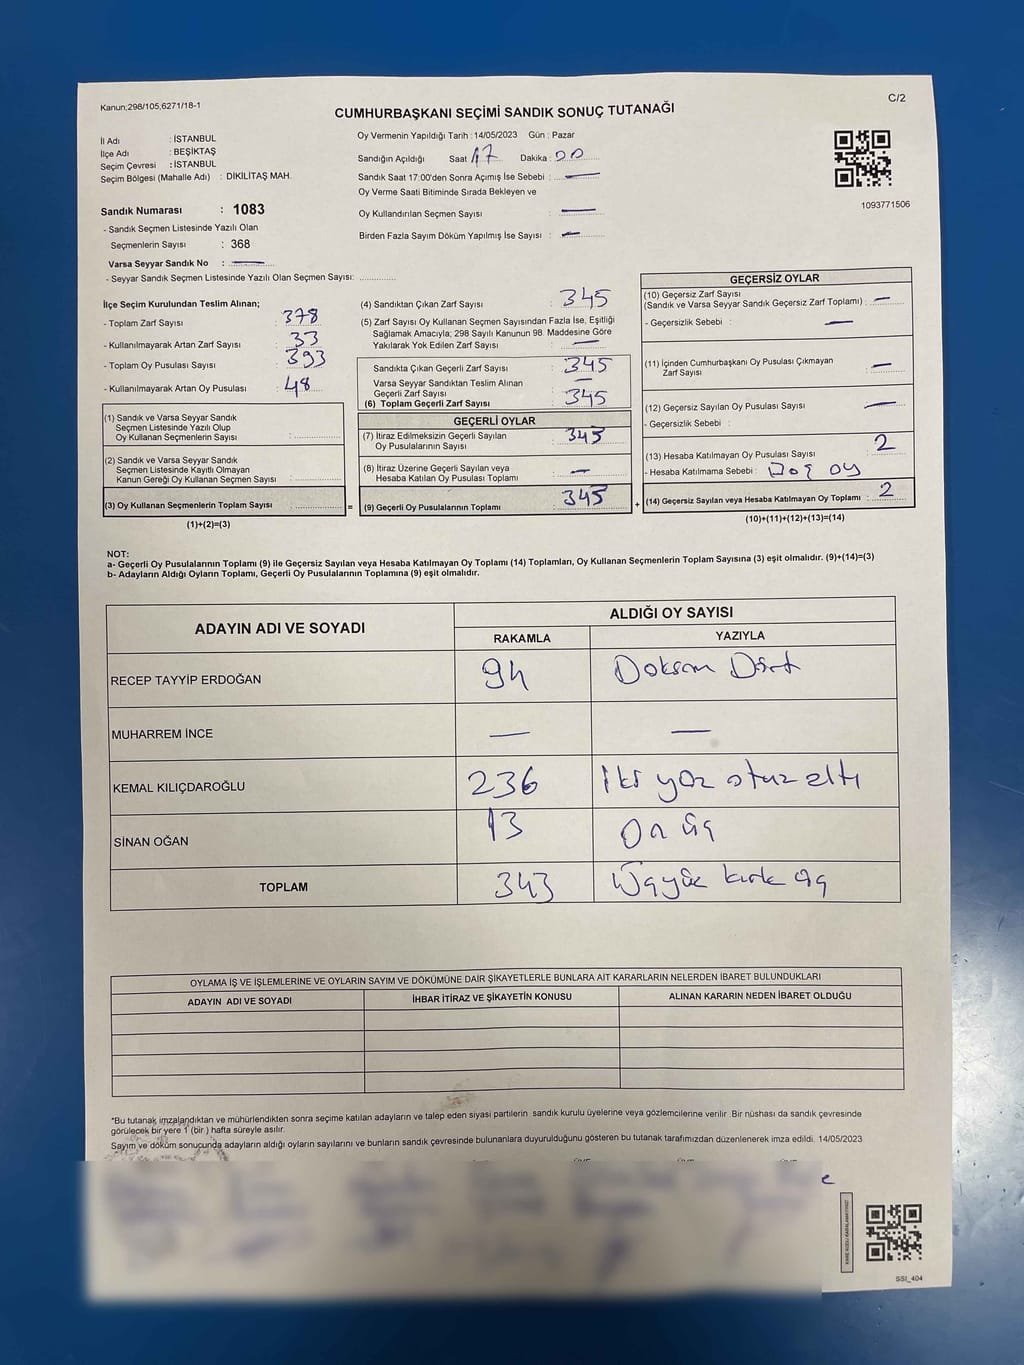 Kanun;298/105,6271/18-1
C/2
CUMHURBAŞKANI SEÇİMİ SANDIK SONUÇ TUTANAĞI
İl Adı : İSTANBUL
İlçe Adı : BEŞİKTAŞ
Seçim Çevresi : İSTANBUL
Seçim Bölgesi (Mahalle Adı) : DİKİLİTAŞ MAH.
Sandık Numarası : 1083
- Sandık Seçmen Listesinde Yazılı Olan
Seçmenlerin Sayısı : 368
Varsa Seyyar Sandık No : —
- Seyyar Sandık Seçmen Listesinde Yazılı Olan Seçmen Sayısı: ............
Oy Vermenin Yapıldığı Tarih : 14/05/2023 Gün : Pazar
Sandığın Açıldığı Saat 17 Dakika : 00
Sandık Saat 17:00'den Sonra Açımış İse Sebebi : —
Oy Verme Saati Bitiminde Sırada Bekleyen ve
Oy Kullandırılan Seçmen Sayısı : —
Birden Fazla Sayım Döküm Yapılmış İse Sayısı : —
1093771506
İlçe Seçim Kurulundan Teslim Alınan;
- Toplam Zarf Sayısı : 378
- Kullanılmayarak Artan Zarf Sayısı : 33
- Toplam Oy Pusulası Sayısı : 393
- Kullanılmayarak Artan Oy Pusulası : 48
(1) Sandık ve Varsa Seyyar Sandık
Seçmen Listesinde Yazılı Olup
Oy Kullanan Seçmenlerin Sayısı : ............
(2) Sandık ve Varsa Seyyar Sandık
Seçmen Listesinde Kayıtlı Olmayan
Kanun Gereği Oy Kullanan Seçmen Sayısı : ............
(3) Oy Kullanan Seçmenlerin Toplam Sayısı : ............ =
(1)+(2)=(3)
(4) Sandıktan Çıkan Zarf Sayısı : 345
(5) Zarf Sayısı Oy Kullanan Seçmen Sayısından Fazla İse, Eşitliği
Sağlamak Amacıyla; 298 Sayılı Kanunun 98. Maddesine Göre
Yakılarak Yok Edilen Zarf Sayısı : —
Sandıkta Çıkan Geçerli Zarf Sayısı : 345
Varsa Seyyar Sandıktan Teslim Alınan
Geçerli Zarf Sayısı : —
(6) Toplam Geçerli Zarf Sayısı : 345
GEÇERLİ OYLAR
(7) İtiraz Edilmeksizin Geçerli Sayılan
Oy Pusulalarının Sayısı : 343
(8) İtiraz Üzerine Geçerli Sayılan veya
Hesaba Katılan Oy Pusulası Toplamı : —
(9) Geçerli Oy Pusulalarının Toplamı : 343 +
GEÇERSİZ OYLAR
(10) Geçersiz Zarf Sayısı
(Sandık ve Varsa Seyyar Sandık Geçersiz Zarf Toplamı) : —
- Geçersizlik Sebebi : —
(11) İçinden Cumhurbaşkanı Oy Pusulası Çıkmayan
Zarf Sayısı : —
(12) Geçersiz Sayılan Oy Pusulası Sayısı : —
- Geçersizlik Sebebi :
(13) Hesaba Katılmayan Oy Pusulası Sayısı : 2
- Hesaba Katılmama Sebebi : Boş oy
(14) Geçersiz Sayılan veya Hesaba Katılmayan Oy Toplamı : 2
(10)+(11)+(12)+(13)=(14)
NOT:
a- Geçerli Oy Pusulalarının Toplamı (9) ile Geçersiz Sayılan veya Hesaba Katılmayan Oy Toplamı (14) Toplamları, Oy Kullanan Seçmenlerin Toplam Sayısına (3) eşit olmalıdır. (9)+(14)=(3)
b- Adayların Aldığı Oyların Toplamı, Geçerli Oy Pusulalarının Toplamına (9) eşit olmalıdır.
ADAYIN ADI VE SOYADI
ALDIĞI OY SAYISI
RAKAMLA YAZIYLA
RECEP TAYYİP ERDOĞAN 94 Doksan Dört
MUHARREM İNCE — —
KEMAL KILIÇDAROĞLU 236 İki yüz otuz altı
SİNAN OĞAN 13 On üç
TOPLAM 343 Üçyüz kırk üç
OYLAMA İŞ VE İŞLEMLERİNE VE OYLARIN SAYIM VE DÖKÜMÜNE DAİR ŞİKAYETLERLE BUNLARA AİT KARARLARIN NELERDEN İBARET BULUNDUKLARI
ADAYIN ADI VE SOYADI İHBAR İTİRAZ VE ŞİKAYETİN KONUSU ALINAN KARARIN NEDEN İBARET OLDUĞU
*Bu tutanak imzalandıktan ve mühürlendikten sonra seçime katılan adayların ve talep eden siyasi partilerin sandık kurulu üyelerine veya gözlemcilerine verilir. Bir nüshası da sandık çevresinde
görülecek bir yere 1 (bir ) hafta süreyle asılır.
Sayım ve döküm sonucunda adayların aldığı oyların sayılarını ve bunların sandık çevresinde bulunanlara duyurulduğunu gösteren bu tutanak tarafımızdan düzenlenerek imza edildi. 14/05/2023
SSI_404